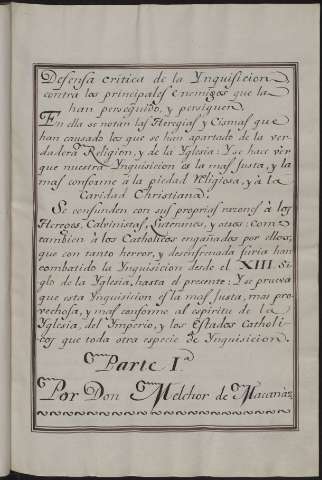 Defensa critica de la Ynquisicion
contra los principales Enemigos que la
han perseguido, y persiguen.
En ella se notan las Heregias, y Cismas que
han causado los que se han apartado de la ver-
dadera Religion, y de la Yglesia: Y se hace vèr
que nuestra Ynquisicion es la mas Justa, y la
mas conforme à la piedad Religiosa, y à la
Caridad Christiana.
Se confunden con sus proprias razones à los
Hereges, Calvinistas, Luteranos, y otros: como
tambien à los Catholicos engañados por ellos,
que con tanto herror, y desenfrenada furia han
combatido la Ynquisicion desde el XIII. Si-
glo de la Yglesia, hasta el presente: Y se prueva
que esta Ynquisicion es la mas Justa, mas pro-
vechosa, y mas conforme al espiritu de la
Yglesia, del Ymperio, y los Estados Catholi-
cos que toda otra especie de Ynquisicion.
Parte I.ª
Por Don Melchor de Macanàz